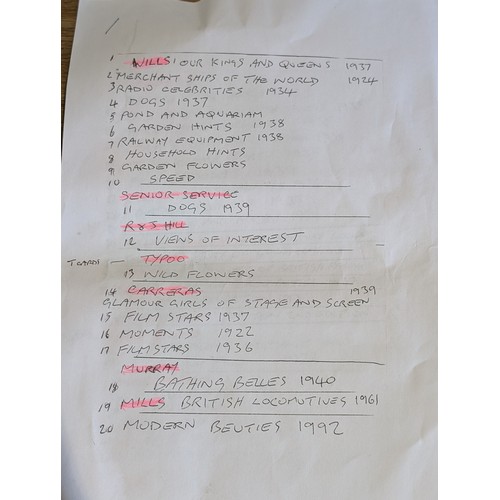 1 WILLS: OUR KINGS AND QUEENS 1937
2 MERCHANT SHIPS OF THE WORLD 1924
3 RADIO CELEBRITIES 1934
4 DOGS 1937
5 POND AND AQUARIAM
6 GARDEN HINTS 1938
7 RAILWAY EQUIPMENT 1938
8 HOUSEHOLD HINTS
9 GARDEN FLOWERS
10 SPEED
SENIOR SERVICE
11 DOGS 1939
R & J HILL
12 VIEWS OF INTEREST
T CARDS — TYPOO
13 WILD FLOWERS
14 CARRERAS 1939
GLAMOUR GIRLS OF STAGE AND SCREEN
15 FILM STARS 1937
16 MOMENTS 1922
17 FILM STARS 1936
MURRAY
18 BATHING BELLES 1940
19 MILLS BRITISH LOCOMUTIVES 1961
20 MODERN BEUTIES 1992